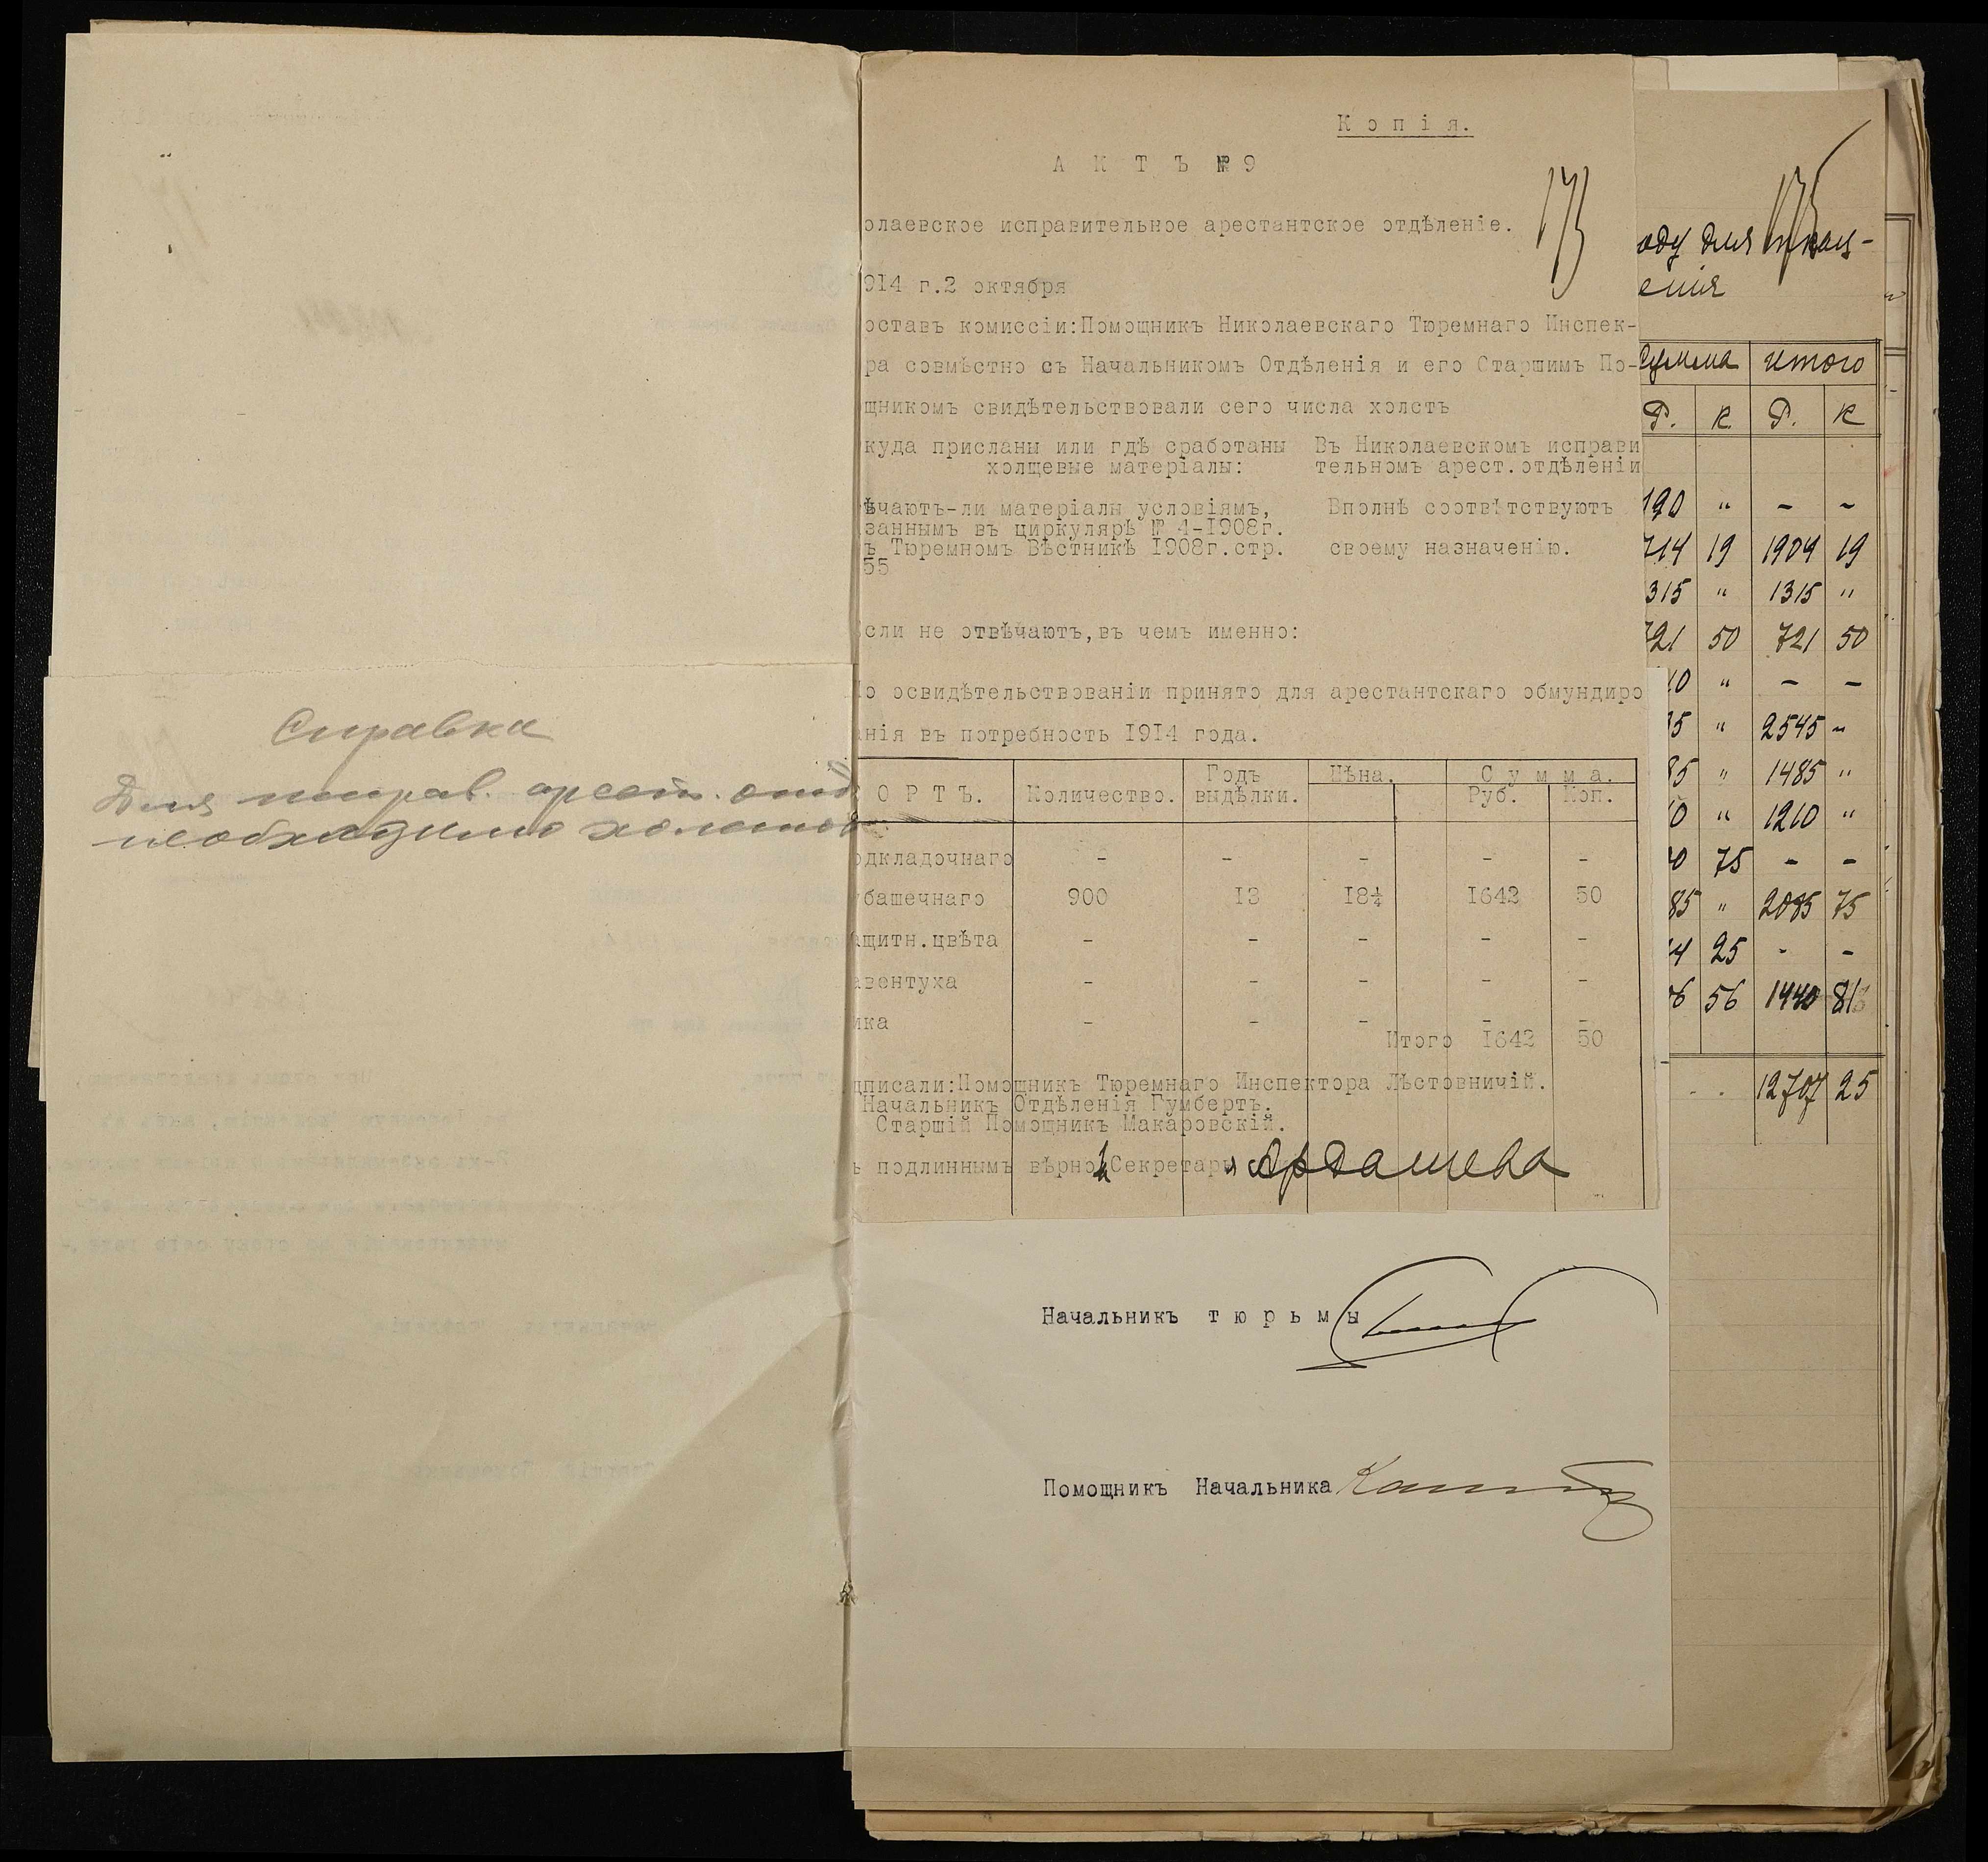 Справка
Для исправ. арест. отд
необходимо холста
Копія.
АКТЪ № 9
173
олаевское исправительное арестантское отдѣленіе.
914 г.2 октября
оставъ комиссіи:Помощникъ Николаевскаго Тюремнаго Инспек-
ра совмѣстно съ Начальникомъ Отдѣленія и его Старшимъ По-
щникомъ свидѣтельствовали сего числа холстъ
куда присланы или гдѣ сработаны Въ Николаевскомъ исправи
холщевые матеріалы: тельномъ арест.отдѣленіи
ѣчаютъ-ли матеріалы условіямъ, Вполнѣ соотвѣтствуютъ
заннымъ въ циркулярѣ № 4-1908г.
ъ Тюремномъ Вѣстникѣ 1908г.стр. своему назначенію.
55
сли не отвѣчаютъ,въ чемъ именно:
о освидѣтельствованіи принято для арестантскаго обмундиро
нія въ потребность 1914 года.
ОРТЪ. Количество. Годъ выдѣлки. Цѣна. Сумма.
Руб. Коп.
одкладочнаго - - - - -
башечнаго 900 13 18¼ 1642 50
ащитн.цвѣта - - - - -
авентуха - - - - -
ика - - - - -
Итого 1642 50
дписали:Помощникъ Тюремнаго Инспектора Лѣстовничій.
Начальникъ Отдѣленія Гумбертъ.
Старшій Помощникъ Макаровскій.
ъ подлиннымъ вѣрно Секретарь Ардашева
Начальникъ тюрьмы
Помощникъ Начальника
175
оду для
енія
Сумма Итого
Р. К. Р. К
190 " - -
714 19 1904 19
315 " 1315 "
721 50 721 50
10 " - -
5 " 2545 "
85 " 1485 "
0 " 1210 "
0 75 - -
85 " 2085 75
4 25 - -
6 56 1440 81
12707 25